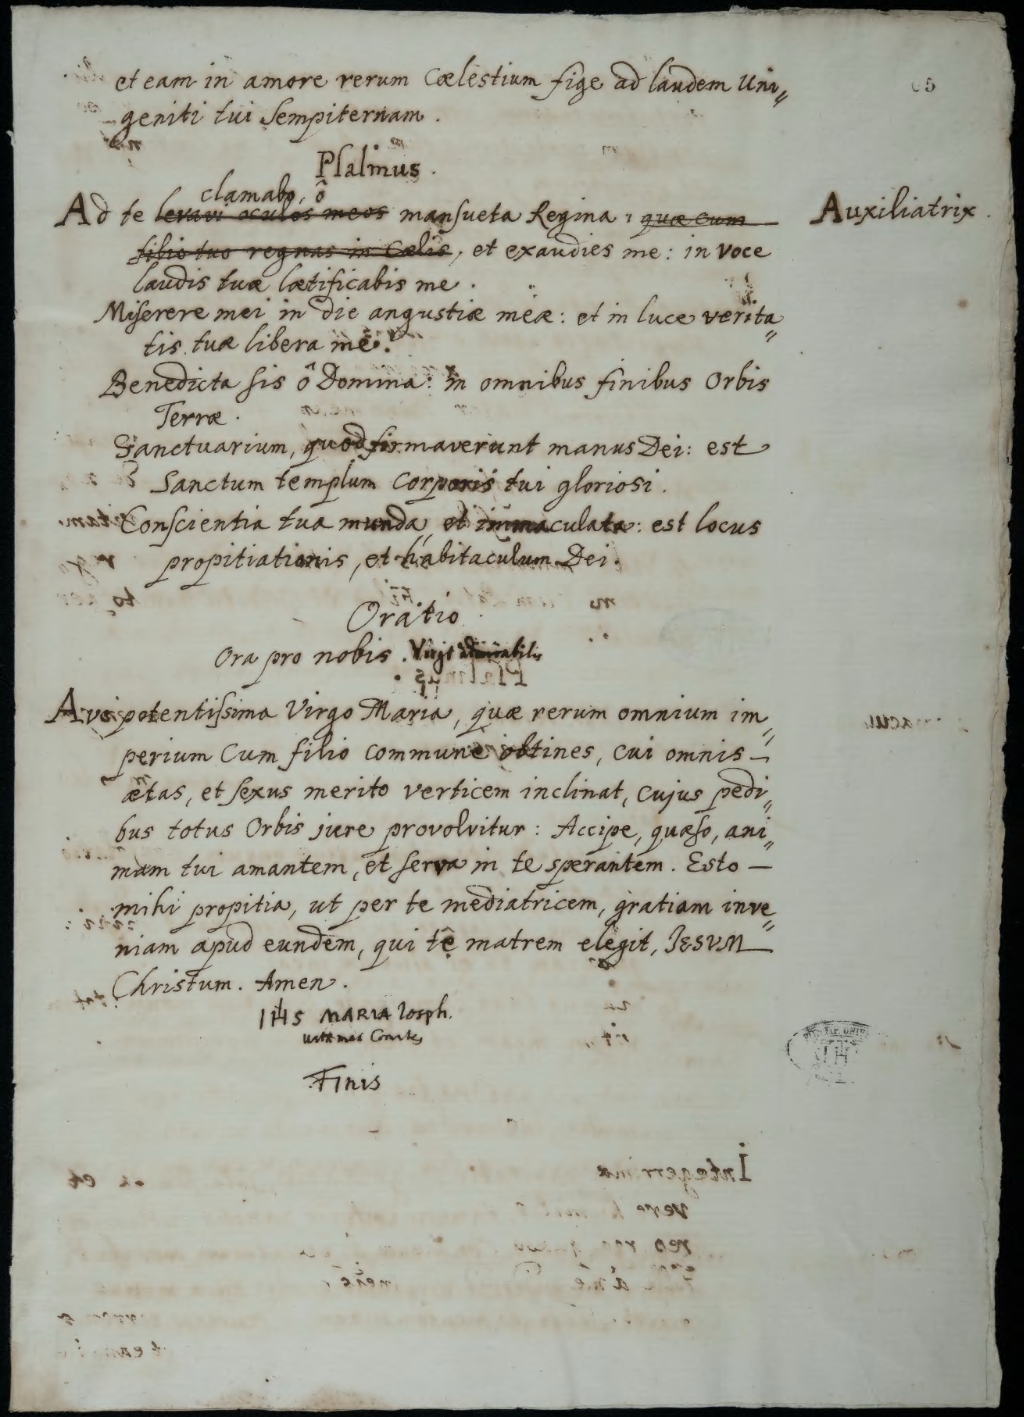 et eam in amore rerum Cœlestium fige ad laudem Uni〃
geniti tui Sempiternam.
Psalmus.
clamabo, ô
Ad te levavi oculos meos mansueta Regina, quæ cum
filio tuo regnas in Cœlis, et exaudies me: in voce
laudis tuæ lætificabis me.
Auxiliatrix.
Miserere mei in die angustiæ meæ: et in luce verita〃
tis tuæ libera me.
Benedicta sis ô Domina: in omnibus finibus Orbis
Terræ.
Sanctuarium, quod firmaverunt manus Dei: est
Sanctum templum Corporis tui gloriosi.
Conscientia tua munda, et immaculata: est locus
propitiationis, et habitaculum Dei.
Oratio
Ora pro nobis. Virgo admirabilis
potentissima Virgo Maria, quæ rerum omnium im〃
perium Cum filio commune obtines, cui omnis —
ætas, et sexus merito verticem inclinat, Cujus pedi〃
bus totus Orbis jure provolvitur: Accipe, quæso, ani〃
mam tui amantem, et serva in te sperantem. Esto —
mihi propitia, ut per te mediatricem, gratiam inve〃
niam apud eundem, qui te matrem elegit, JESVM
Christum. Amen.
IHS MARIA Ioseph.
Finis